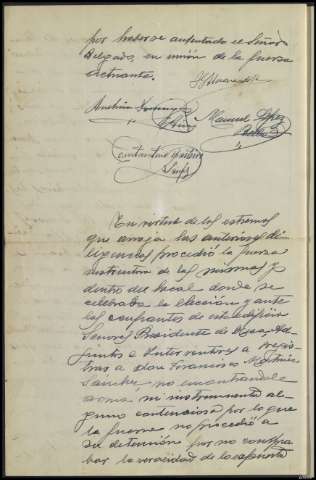 por haberse ausentado el Señor
Delgado, en unión de la fuerza
actuante.
Manuel López
En virtud de los extremos
que arroja las anteriores di
ligencias procedió la fuerza
instructora de las mismas y
dentro del local donde se
celebraba la elección y ante
los componentes de este edificio
Señores Presidente de Mesa, Ad
juntos e Interventores a regis
trar a Don Francisco Martínez
Sánchez no encontrandole
arma ni instrumento al
guno contencioso por lo que
la fuerza no procedió a
su detención por no compro
bar la veracidad de lo expuesto